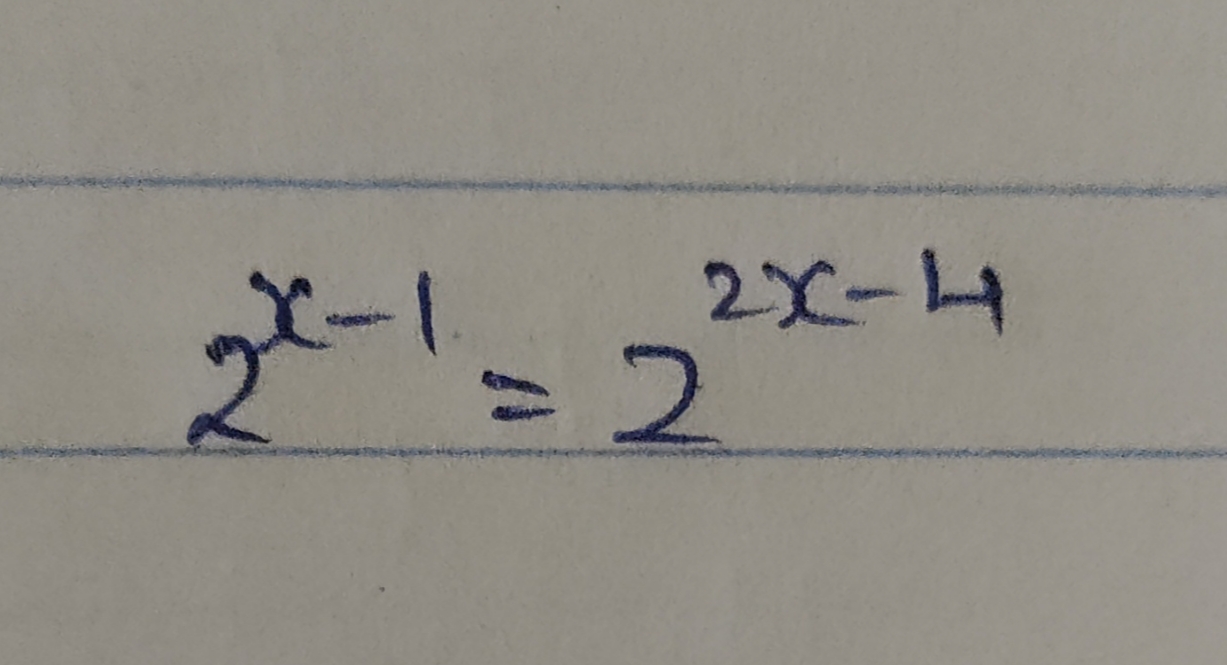 2^{x-1} = 2^{2x-4}